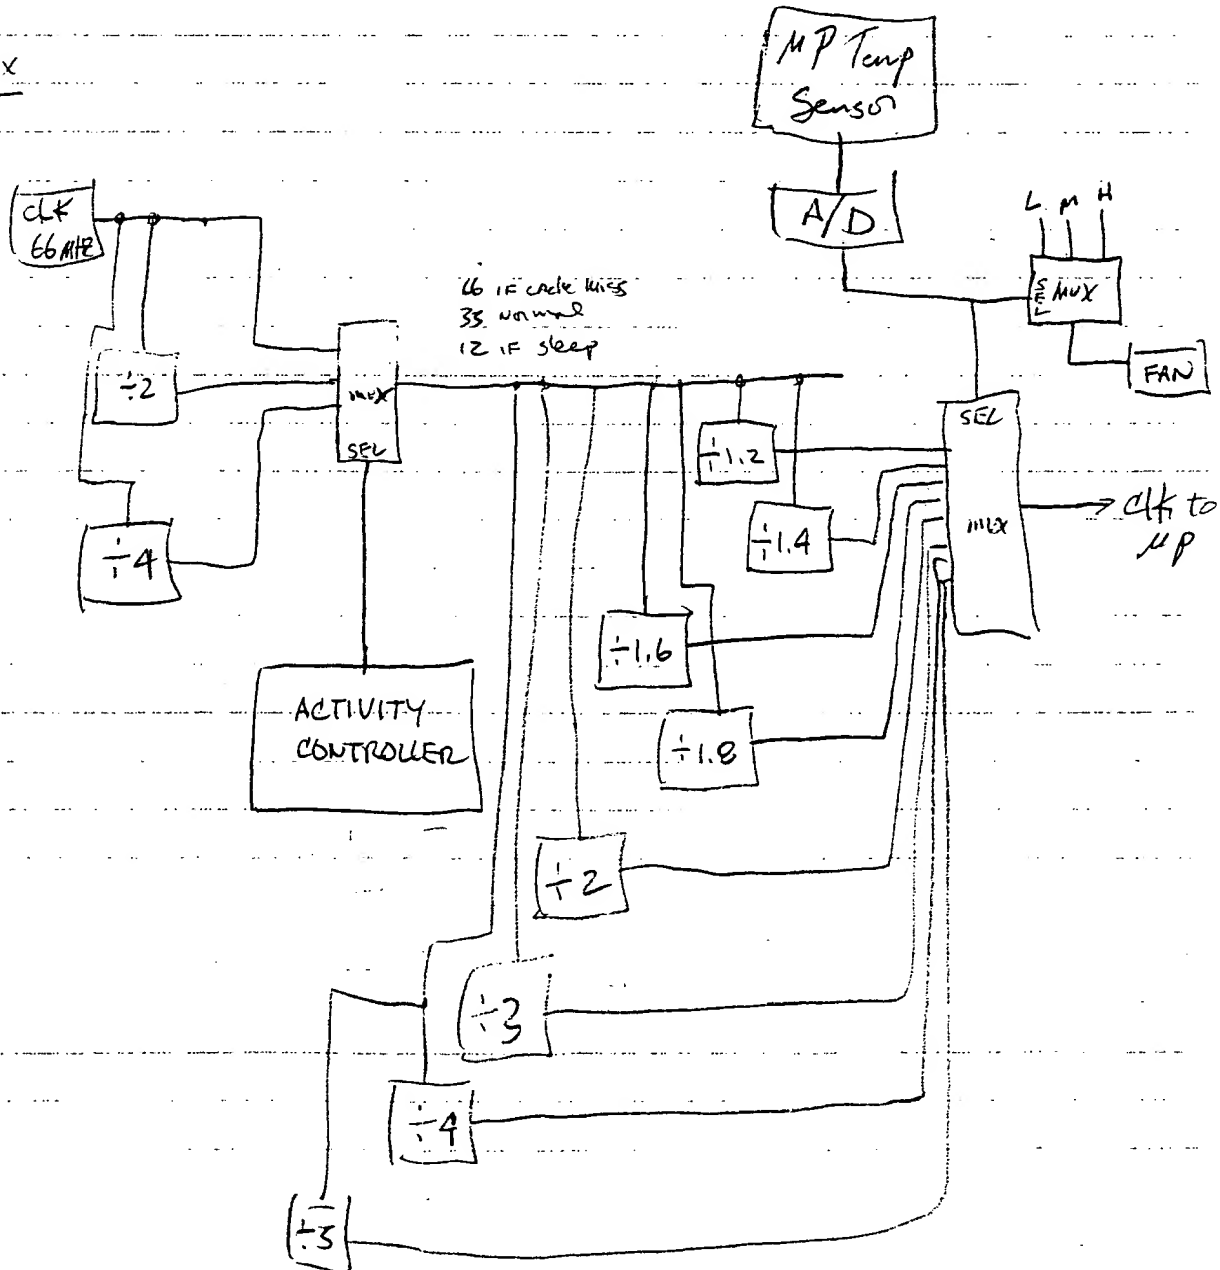 x
μP Temp
Sensor
A/D
L M H
SEL MUX
FAN
CLK
66 MHZ
66 IF cache miss
33 Normal
12 IF sleep
÷2
mux
SEL
÷4
ACTIVITY
CONTROLLER
÷1.2
÷1.4
÷1.6
÷1.8
÷2
÷3
÷4
SEL
mux
clk to
μP